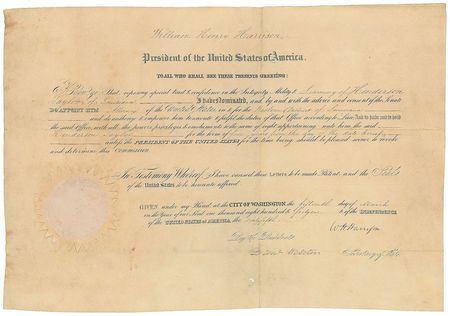 William Henry Harrison
President of the United States of America.
TO ALL WHO SHALL SEE THESE PRESENTS GREETING:
Know Ye That reposing special trust & confidence in the Integrity Ability & of Henderson
Taylor of Louisiana I have Nominated, and by and with the advice and consent of the Senate
DO APPOINT HIM of the United States in & for the Western District of Louisiana
and do authorize & empower him to execute & fulfil the duties of that Office according to Law; And to have & to hold
the said Office, with all the powers, privileges & emoluments to the same of right appertaining unto him the said
Henderson for the term of four years from the
unless the PRESIDENT OF THE UNITED STATES for the time being should be pleased sooner to revoke
and determine this Commission.
In Testimony Whereof I have caused these Letters to be made Patent, and the Seal
of the United States to be hereunto affixed.
GIVEN under my Hand, at the CITY OF WASHINGTON, the fifteenth day of March
in the Year of our Lord one thousand eight hundred & and of the INDEPENDENCE
of the UNITED STATES OF AMERICA, the Sixty fifth.
W H Harrison
By the President
Danl Webster Secretary of State